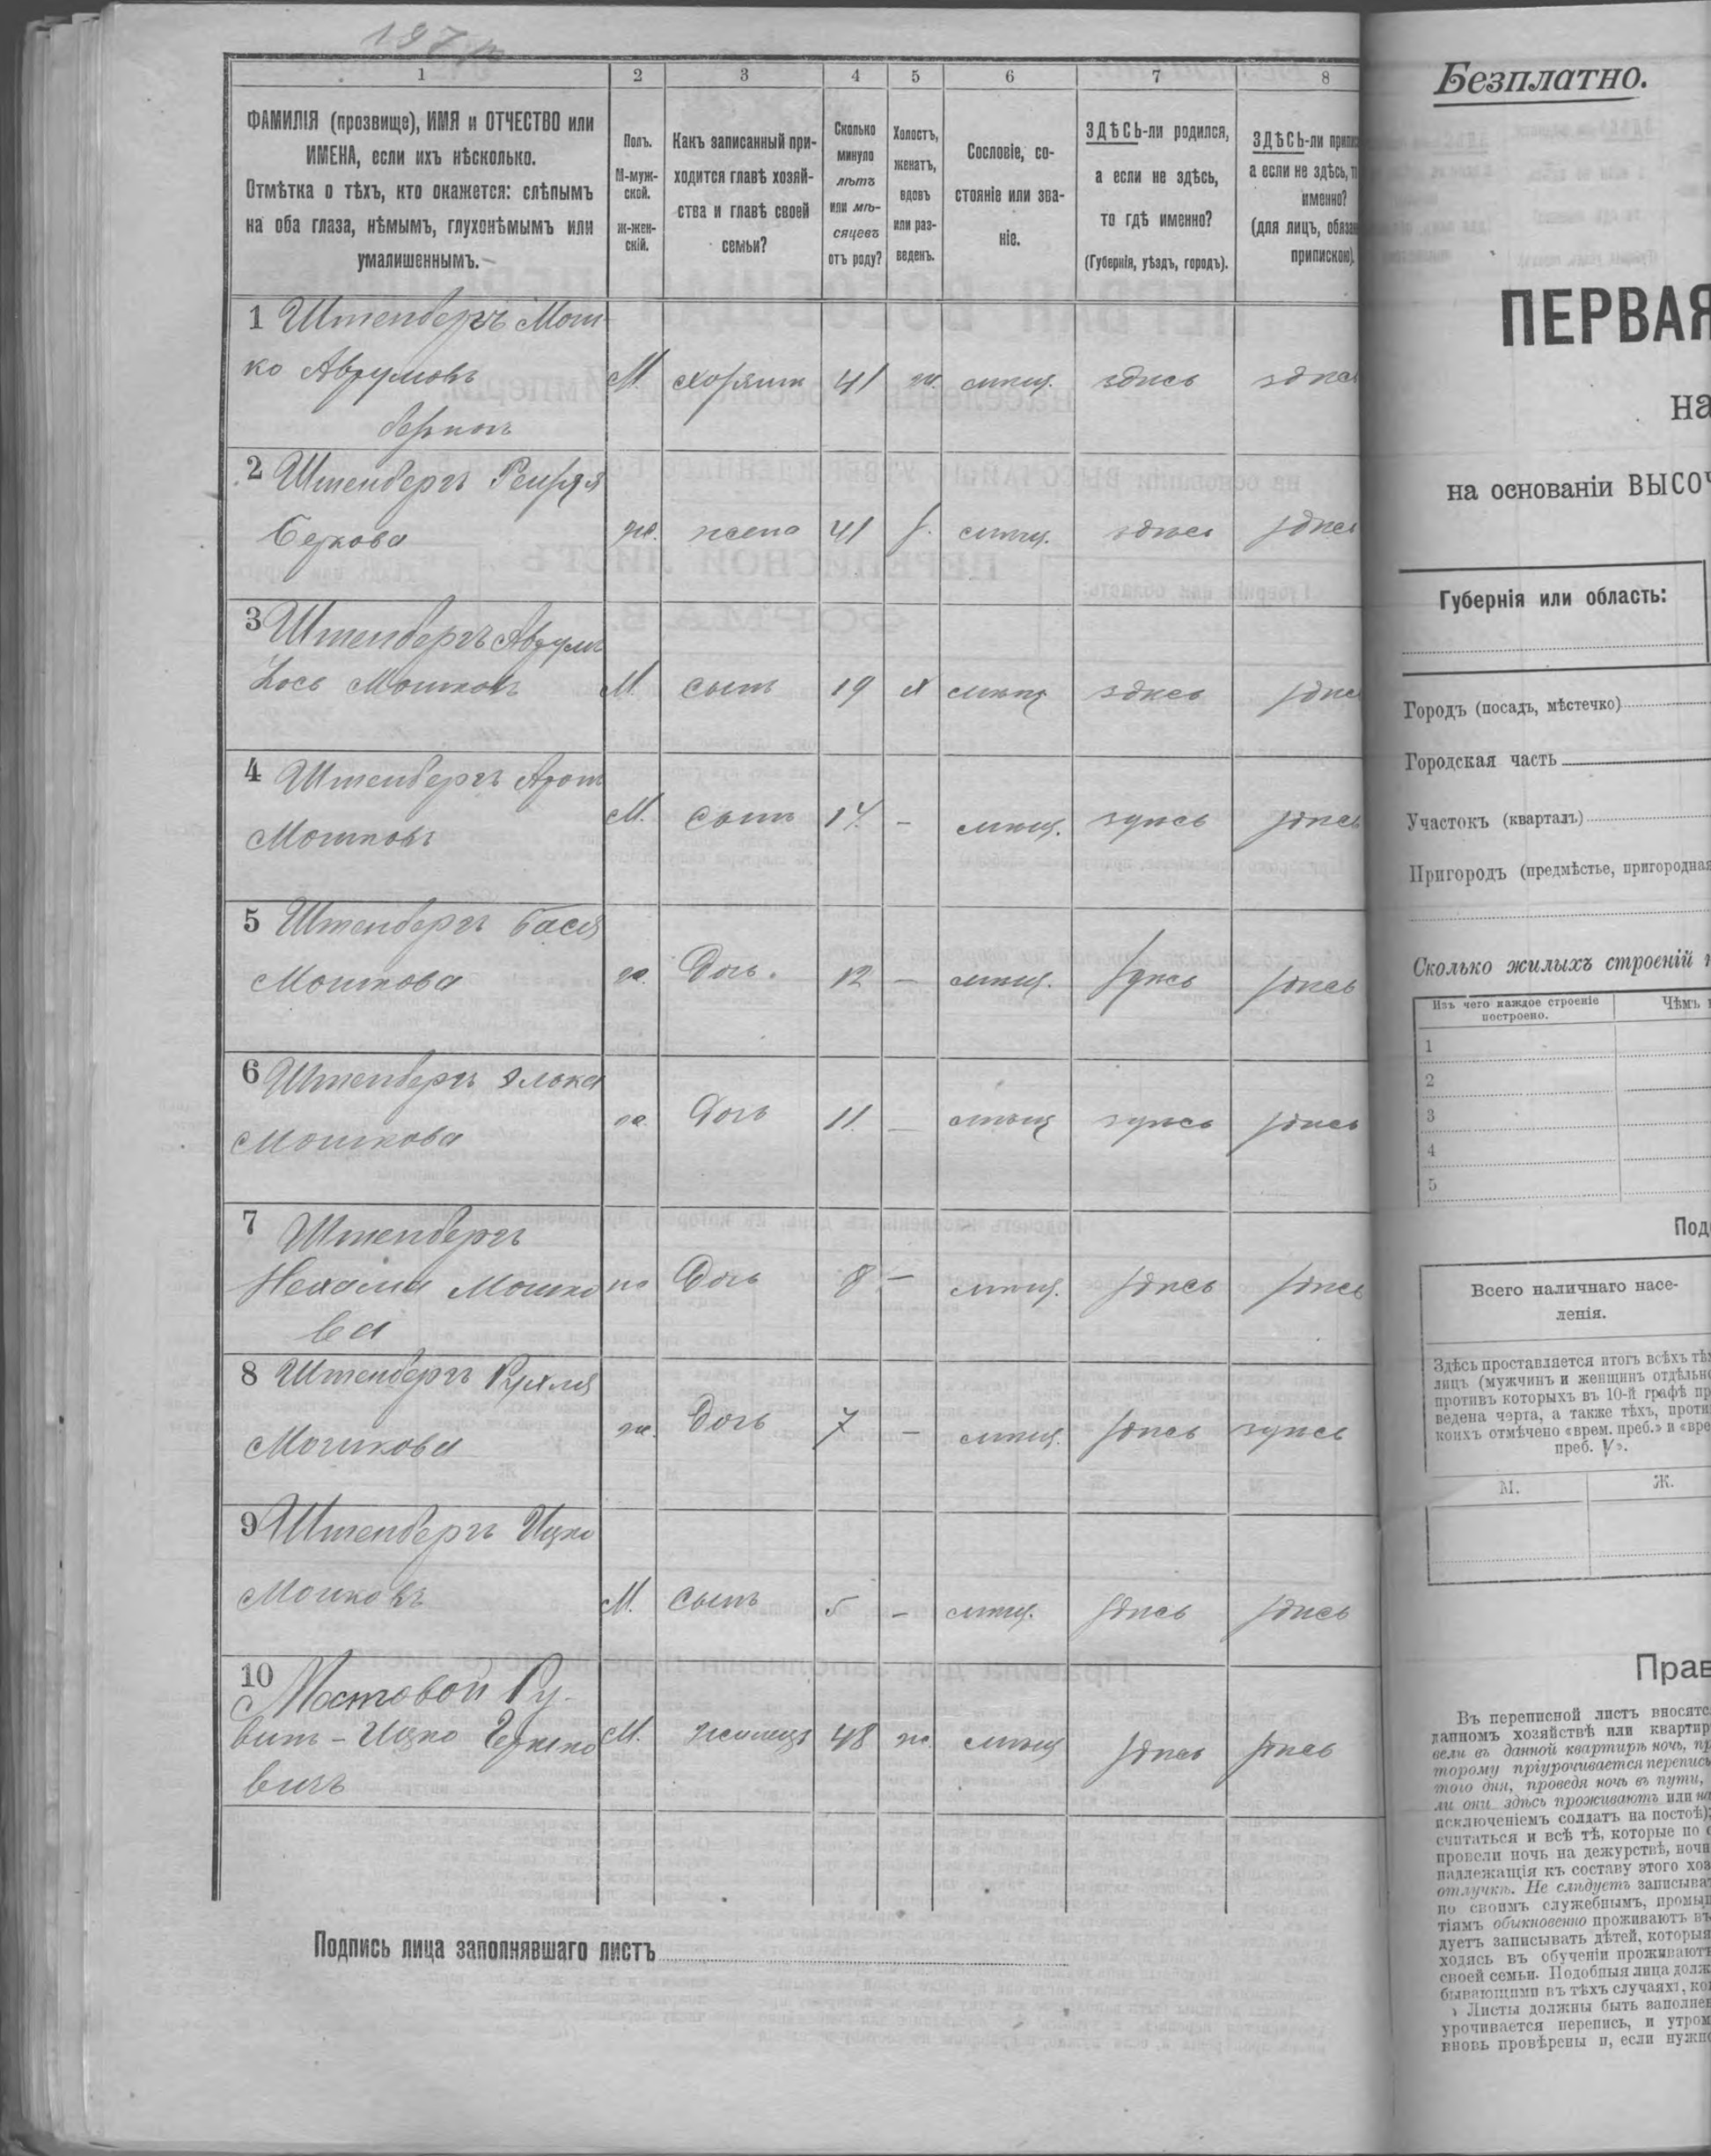 1 2 3 4 5 6 7 8
ФАМИЛІЯ (прозвище), ИМЯ и ОТЧЕСТВО или
ИМЕНА, если ихъ нѣсколько.
Отмѣтка о тѣхъ, кто окажется: слѣпымъ
на оба глаза, нѣмымъ, глухонѣмымъ или
умалишеннымъ.
Полъ.
М-муж-
ской.
ж-жен-
скій.
Какъ записанный при-
ходится главѣ хозяй-
ства и главѣ своей
семьи?
Сколько
минуло
лѣтъ
или мѣ-
сяцевъ
отъ роду?
Холостъ,
женатъ,
вдовъ
или раз-
веденъ.
Сословіе, со-
стояніе или зва-
ніе.
ЗДѢСЬ-ли родился,
а если не здѣсь,
то гдѣ именно?
(Губернія, уѣздъ, городъ).
ЗДѢСЬ-ли
а если не здѣсь,
именно?
(для лицъ,
припискою).
1 Штенбергъ Мош-
ко Аврумовъ М. 41 ж. мѣщ. здѣсь
2 Штенбергъ
Беркова ж. жена 41 мѣщ. здѣсь здѣсь
3 Штенбергъ Аврумъ
Мошковъ М. сынъ 19 х мѣщ здѣсь
4 Штенбергъ Аронъ
Мошковъ М. сынъ 14. - мѣщ. здѣсь здѣсь
5 Штенбергъ Бася
Мошкова ж. Дочь. 12 - мѣщ. здѣсь здѣсь
6 Штенбергъ Элька
Мошкова ж. Дочь 11. - мѣщ здѣсь здѣсь
7 Штенбергъ
Нехама Мошко ж Дочь 8 - мѣщ. здѣсь здѣсь
ва
8 Штенбергъ Рухля
Мошкова ж. Дочь 7 - мѣщ. здѣсь здѣсь
9 Штенбергъ Ицко
Мошковъ М. сынъ 5 - мѣщ. здѣсь здѣсь
10 Мостовой Ру-
винъ-Ицко М. жилецъ 48 ж. мѣщ здѣсь здѣсь
вичъ
Подпись лица заполнявшаго листъ
Безплатно.
ПЕРВАЯ
на
на основаніи
Губернія или область:
Городъ (посадъ, мѣстечко)
Городская часть
Участокъ (кварталъ)
Пригородъ (предмѣстье, пригородная
Сколько жилыхъ строеній
Изъ чего каждое строеніе
построено.
Чѣмъ
1
2
3
4
5
Всего наличнаго насе-
ленія.
Здѣсь проставляется итогъ всѣхъ
лицъ (мужчинъ и женщинъ
противъ которыхъ въ 10-й графѣ
ведена черта, а также тѣхъ,
коихъ отмѣчено «врем. преб.» и
преб. V».
М. Ж.
Въ переписной листъ
данномъ хозяйствѣ или
вели въ данной квартирѣ ночь,
торому пріурочивается перепись
того дня, проведя ночь въ пути,
ли они здѣсь проживаютъ или
исключеніемъ солдатъ на постоѣ);
считаться и всѣ тѣ, которые по
провели ночь на дежурствѣ,
надлежащія къ составу этого
отлучкѣ. Не слѣдуетъ
по своимъ служебнымъ,
тіямъ обыкновенно проживаютъ
дуетъ записывать дѣтей, которыя
ходясь въ обученіи проживаютъ
своей семьи. Подобныя лица
бывающими въ тѣхъ случаяхъ,
Листы должны быть
урочивается перепись, и утромъ
вновь провѣрены и, если